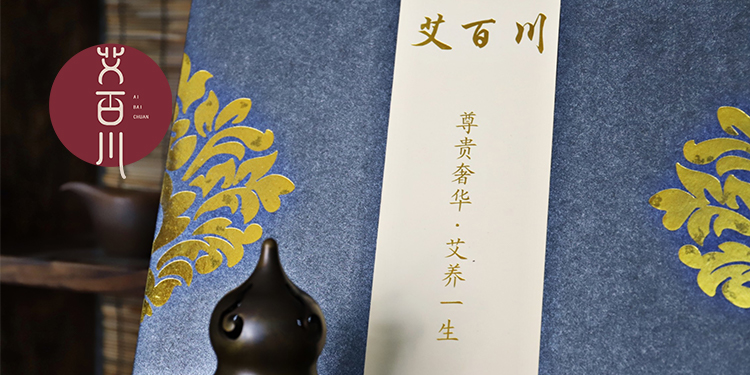 艾百川
AI
BAI
CHUAN
艾百川
尊贵奢华·艾养一生